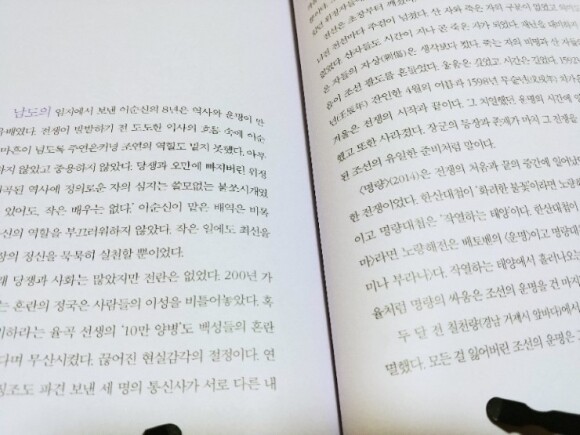 남도의 위지에서 보낸 이순신의 8년은 역사와 운명이 만
전쟁이 발발하기 전 도도한 역사의 흐름 속에 이순
마흔이 넘도록 주연은커녕 조연의 역할도 맡지 못했다. 아무
하지 않았고 중용하지 않았다. 당쟁과 오만에 빠져버린 위정
왜곡된 역사에 정의로운 자의 심지는 쓸모없는 불쏘시개였
있어도, 작은 배우는 없다.’ 이순신이 맡은 배역은 비록
신의 역할을 부끄러워하지 않았다. 작은 일에도 최선을
장의 정신을 묵묵히 실천할 뿐이었다.
당쟁과 사화는 많았지만 전란은 없었다. 200년 가
는 혼란의 정국은 사람들의 이성을 비틀어놓았다. 혹
비하라는 율곡 선생의 ‘10만 양병’도 백성들의 혼란
다며 무산시켰다. 끊어진 현실감각의 절정이다. 연
징조도 파견 보낸 세 명의 통신사가 서로 다른 내
전선은 초장부터 깨졌다. 산 자와 죽은 자의 구분이 없었고
전선마다 주검이 넘쳤다.
없었다. 산자들도 시간이 지나 곧 죽은 자가 되었다.
은 자들의 자상(刺傷)은 생각보다 컸다. 죽는 자의 비명과 산 자들
음이 조선 팔도를 흔들었다. 울음은 길었고 시간은 길었다. 1592
년(壬辰年) 잔인한 4월의 여름과 1598년 무술년(戊戌年)
겨울은 전쟁의 시작과 끝이다. 그 치열했던 운명의 시간에 영
했고 또한 사라졌다. 장군의 등장과 존재가 마치 그 전쟁을
된 조선의 유일한 준비처럼 말이다.
〈명량〉(2014)은 전쟁의 처음과 끝의 중간에 일어난
한 전쟁이었다. 한산대첩이 ‘화려한 불꽃’이라면 노량해
이고 명량대첩은 ‘작열하는 태양’이다. 한산대첩이
마)라면 노량해전은 베토벤의 〈운명〉이고 명량대
미나 부라나〉다. 작열하는 태양에서 흘러나오는
율처럼 명량의 싸움은 조선의 운명을 건 마지
두 달 전 칠천량(경남 거제시 앞바다)에서
멸했다. 모든 걸 잃어버린 조선의 운명은